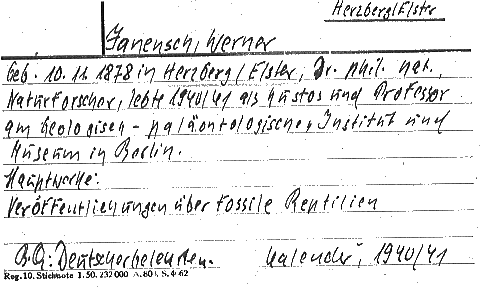 Herzberg/Elster
Janensch, Werner
Geb. 10.11.1878 in Herzberg/Elster, Dr. phil. nat.,
Naturforscher, lebte 1940/41 als Kustos und Professor
am Geologisch-paläontologischen Institut und
Museum in Berlin.
Hauptwerke:
Veröffentlichungen über fossile Reptilien
B.Q.: Deutscher Gelehrten. Kalender, 1940/41
Reg. 10. Stichnote 1. 50. 232 000 A. 80 S. 4 62